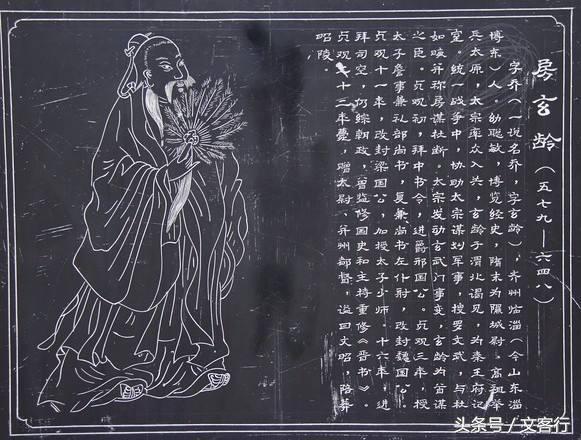 房玄龄（五七九—六四八）
字乔（一说名乔，字玄龄）齐州临淄（今山东淄
博东）人。幼聪敏，博览经史，隋末为隰城尉。高祖举
兵太原，太宗率众入关，玄龄于渭北谒见，为秦王府记
室。统一战争中，协助太宗谋划军事，搜罗文武，与杜
如晦并称房谋杜断。太宗发动玄武门事变，玄龄为首谋
之臣。贞观初，拜中书令，进爵邢国公。贞观三年，授
太子詹事兼礼部尚书，复兼尚书左仆射，改封魏国公。
贞观十一年，改封梁国公，加授太子少师。十六年，进
拜司空，仍综朝政，曾监修国史和主持重修《晋书》。
贞观二十三年薨，赠太尉、并州都督，谥曰文昭，陪葬
昭陵。
头条号／文客行